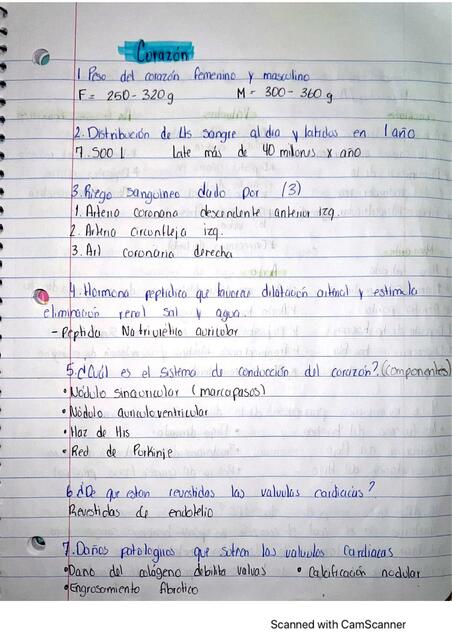 Corazón
1 Peso del corazón femenino y masculino
F = 250-320g M = 300-360g
2. Distribución de Lts sangre al dia y latidos en 1 año
7.500 l late más de 40 millones x año
3. Riego sanguineo dado por (3)
1. Arteria coronaria descendente anterior izq.
2. Arteria circunfleja izq.
3. Art coronaria derecha
4. Hormona peptidica que favorece dilatación arterial y estimula
eliminación renal sal y agua.
- Peptido Natriurético auricular
5. ¿Cuál es el sistema de conducción del corazón? (componentes)
• Nódulo sinoauricular (marcapasos)
• Nódulo auriculoventricular
• Haz de His
• Red de Purkinje
6 ¿De que estan revestidas las valvulas cardiacas?
Revestidas de endotelio
7. Daños patologicos que sufren las valvulas cardiacas
• Daño del colágeno debilita valvas • Calcificación nodular
• Engrosamiento fibrotico
Scanned with CamScanner